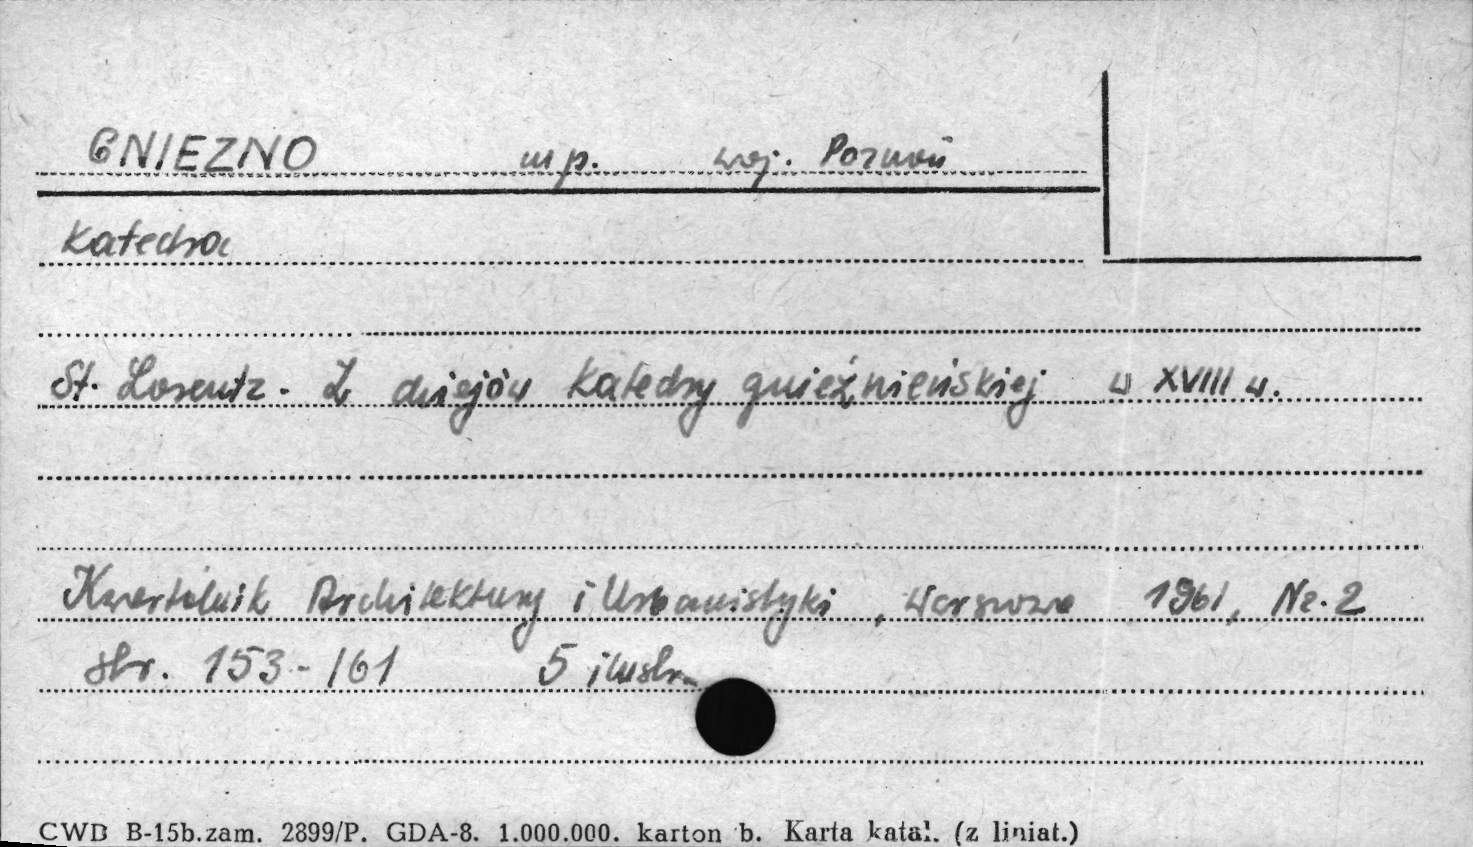 GNIEZNO mp. woj. Poznań
Katedra
St. Lorentz - Z dziejów Katedry gnieźnieńskiej w XVIII w.
Kwartalnik Architektury i Urbanistyki, Warszawa 1961, Nr. 2
str. 153-161 5 ilustr.
CWD B-15b.zam. 2899/P. GDA-8. 1.000.000. karton b. Karta katal. (z liniat.)